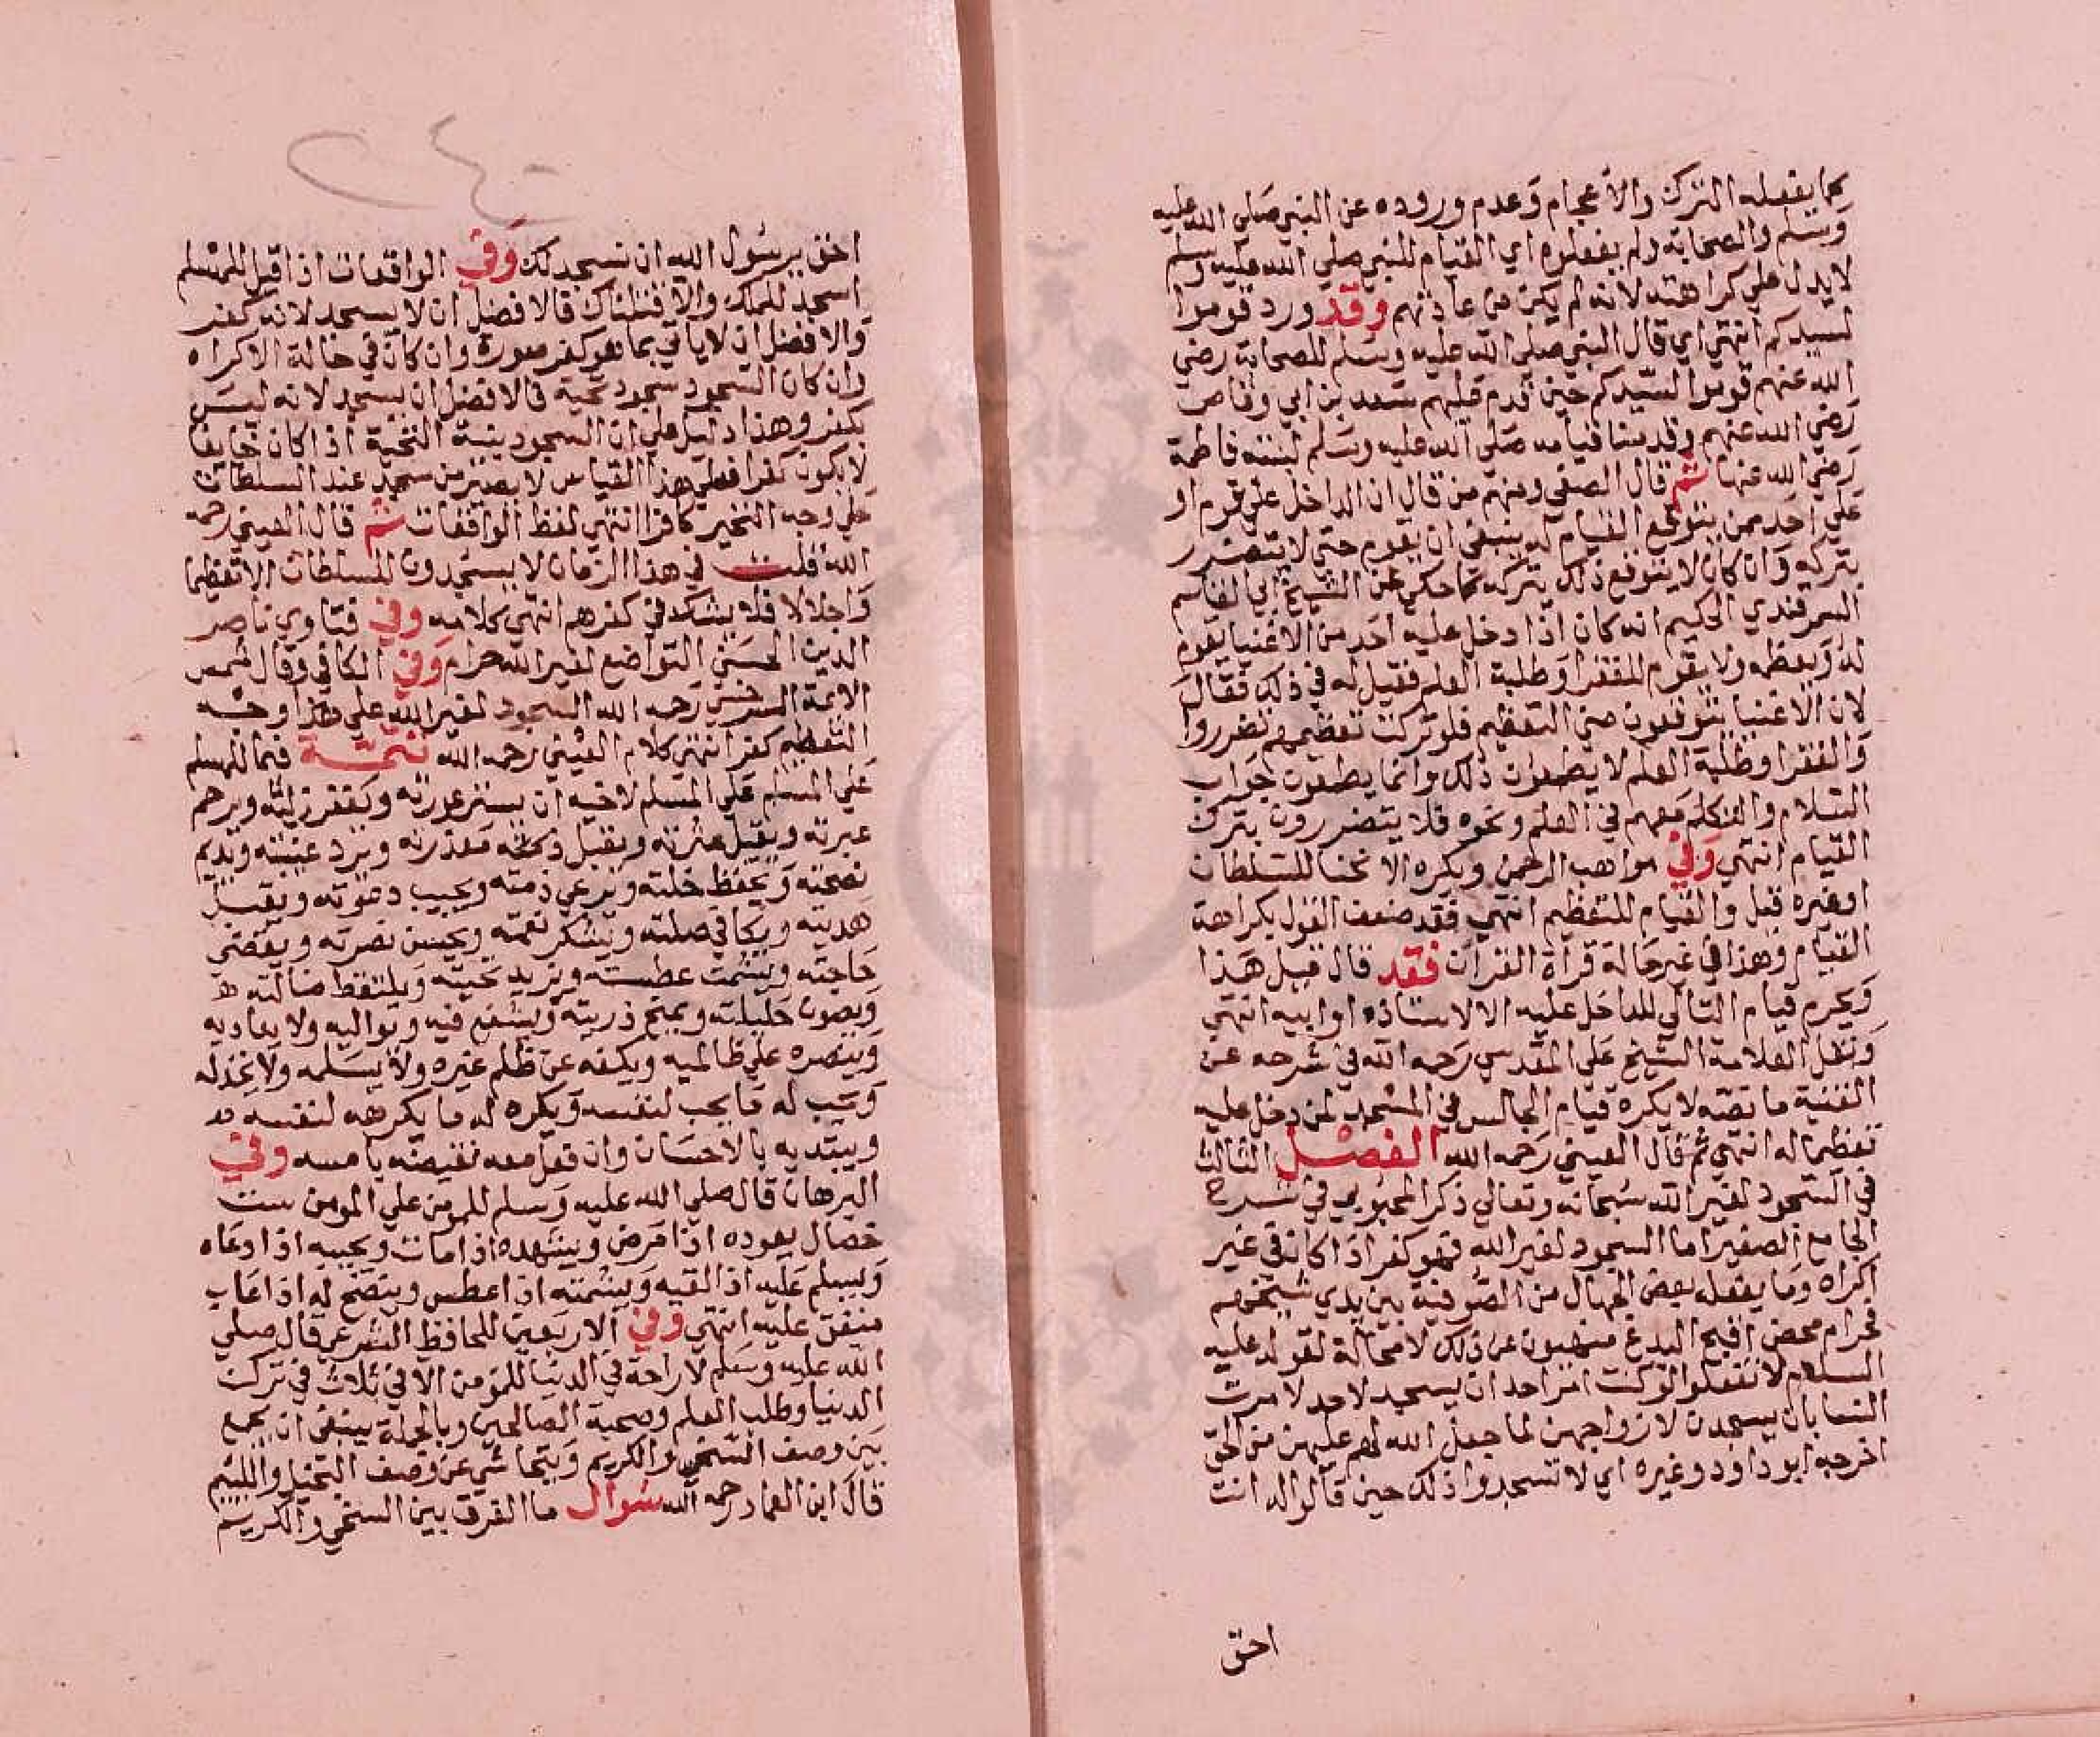 كما يفعله الترك والأعجام وعدم وروده عن النبي صلي الله عليه
وسلم والصحابة ولم يفعلوه اي القيام للنبي صلي الله عليه وسلم
لا يدل علي كراهته لانه لم يكن من عادتهم وقد ورد قوموا
لسيدكم انتهي اي قال النبي صلي الله عليه وسلم للصحابة رضي
الله عنهم قوموا لسيدكم حين قدم قبلهم سعد بن ابي وقاص
رضي الله عنهم وقد بينا قيامه صلي الله عليه وسلم لبنته فاطمة
رضي الله عنها ثم قال الصفي ومنهم من قال ان الداخل علي قوم او
علي احد ممن يتوقع القيام له ينبغي ان يقوم حتي لا يتضرر
بتركه وان كان لا يتوقع ذلك يتركه كما حكي عن الشيخ ابي القاسم
السمرقندي الحكيم انه كان اذا دخل عليه احد من الاغنيا يقوم
له ويعظمه ولا يقوم للفقرا وطلبة العلم فقيل له في ذلك فقال
لان الاغنيا يتوقعون مني التعظيم فلو تركت تعظيمهم تضرروا
والفقرا وطلبة العلم لا يطمعون ذلك وانما يطمعون جواب
السلام والتكلم معهم في العلم ونحوه فلا يتضررون بترك
القيام انتهي وفي مواهب الرحمن ويكره الانحنا للسلطان
اوغيره قيل والقيام للتعظيم انتهي فقد ضعف القول بكراهة
القيام وهذا في غير حالة قرأة القران فقد قال قبل هذا
ويحرم قيام التالي للداخل عليه الا لاستاذه او ابيه انتهي
ونقل العلامة الشيخ علي المقدسي رحمه الله في شرحه عن
القنية ما نصه لا يكره قيام الجالس في المسجد لمن دخل عليه
تعظيما له انتهي ثم قال العيني رحمه الله الفصل الثالث
في السجود لغير الله سبحانه وتعالي ذكر المحبوبي في شرح
الجامع الصغير اما السجود لغير الله فهو كفر اذا كان في غير
اكراه وما يفعله بعض الجهال من الصوفية بين يدي شيخهم
فحرام محض اقبح البدع منهيون عن ذلك لا محالة لقوله عليه
السلام لا تفعلوا لو كنت امر احد ان يسجد لاحد لامرت
النسا بان يسجدن لازواجهن لما جعل الله لهم عليهن من الحق
اخرجه ابو داود وغيره اي لا تسجدوا ذلك حين قالوا له انت
احق
احق برسول الله ان نسجد لك وفي الواقعات اذا قيل للمسلم
اسجد للملك والا قتلناك فالافضل ان لا يسجد لانه كفر
والافضل ان لا ياتي بما هو كفر صورة وان كان في حالة الاكراه
وان كان السجود سجود تحية فالافضل ان يسجد لانه ليس
بكفر وهذا دليل علي ان السجود بنية التحية اذا كان خايفا
لا يكون كفرا فعلي هذا القياس لا يصير من سجد عند السلطان
علي وجه التخير كافرا انتهي لفظ الواقعات ثم قال العيني رحمه
الله قلت في هذا الزمان لا يسجدون للسلطان الا تعظيما
واجلالا فلا يشك في كفرهم انتهي كلامه وفي فتاوي ناصر
الدين الحسني التواضع لغير الله حرام وفي الكافي وقال شمس
الائمة السرخسي رحمه الله السجود لغير الله علي وجه
التعظيم كفر انتهي كلام العيني رحمه الله تتمة فيما للمسلم
علي المسلم علي المسلم لاخيه ان يستر عورته ويغفر زلته ويرحم
عبرته ويقيل عثرته ويقبل معذرته ويرد غيبته ويديم
نصحته ويحفظ خلته ويرعي ذمته ويجيب دعوته ويقبل
هديته ويكافي صلته ويشكر نعمته ويحسن نصرته ويقضي
حاجته ويشمت عطسته ويريد تحيته ويلتقط ضالته
ويصون حليلته ذريته ويشفع فيه ويواليه ولا يعاديه
وينصره علي ظالميه ويكفه عن ظلم غيره ولا يسلمه ولا يخذله
ويحب له ما يحب لنفسه ويكره له ما يكره لنفسه
ويبتديه بالاحسان وان فعل معه نقيضه وفي
البرهان قال صلي الله عليه وسلم للمومن علي المومن ست
خصال يعوده اذا مرض ويشهده اذا مات ويجيبه اذا دعاه
ويسلم عليه اذا لقيه ويشمته اذا عطس وينصح له اذا غاب
متفق عليه انتهي وفي الاربعين للحافظ قال صلي
الله عليه وسلم لا راحة في الدنيا للمومن الا في ثلاث في ترك
الدنيا وطلب العلم وصحبة الصالحين وبالجملة ينبغي ان يجمع
بين وصف السخي والكريم ويتحاشي عن وصف البخيل واللئيم
قال ابن العماد رحمه الله سوال ما الفرق بين السخي والكريم